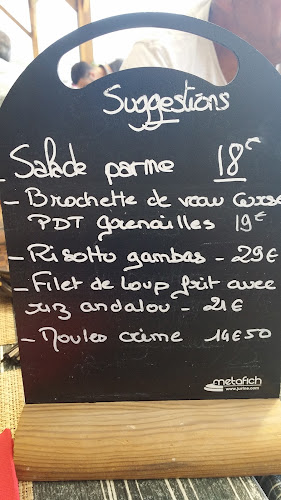 Suggestions
- Salade parme 18€
- Brochette de veau Corse
PDT Grenailles 19€
- Risotto gambas - 29€
- Filet de loup frit avec
riz andalou - 21€
- Moules crème 14€50
metafich
www.jurine.com